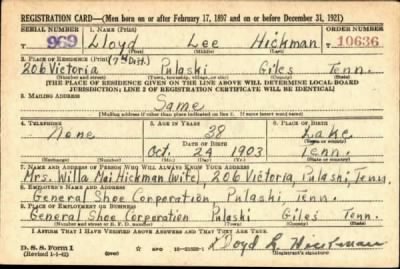 REGISTRATION CARD—(Men born on or after February 17, 1897 and on or before December 31, 1921)
SERIAL NUMBER 1. NAME (Print) ORDER NUMBER
T 969 Lloyd Lee Hickman 10636
(First) (Middle) (Last)
2. PLACE OF RESIDENCE (Print) (7th Dist.)
206 Victoria Pulaski Giles Tenn.
(Number and street) (Town, township, village, or city) (County) (State)
[THE PLACE OF RESIDENCE GIVEN ON THE LINE ABOVE WILL DETERMINE LOCAL BOARD
JURISDICTION; LINE 2 OF REGISTRATION CERTIFICATE WILL BE IDENTICAL]
3. MAILING ADDRESS
Same
[Mailing address if other than place indicated on line 2. If same insert word same]
4. TELEPHONE 5. AGE IN YEARS 6. PLACE OF BIRTH
None 38 Lake
DATE OF BIRTH (Town or county)
Oct. 24 1903 Tenn.
(Exchange) (Number) (Mo.) (Day) (Yr.) (State or country)
7. NAME AND ADDRESS OF PERSON WHO WILL ALWAYS KNOW YOUR ADDRESS
Mrs. Willa Mai Hickman (wife), 206 Victoria, Pulaski, Tenn.
8. EMPLOYER'S NAME AND ADDRESS
General Shoe Corporation, Pulaski, Tenn.
9. PLACE OF EMPLOYMENT OR BUSINESS
General Shoe Corporation Pulaski Giles Tenn.
(Number and street or R. F. D. number) (Town) (County) (State)
I AFFIRM THAT I HAVE VERIFIED ABOVE ANSWERS AND THAT THEY ARE TRUE.
D. S. S. Form 1
(Revised 1-1-42) GPO 16-21630-1 Lloyd L Hickman
(Registrant's signature)